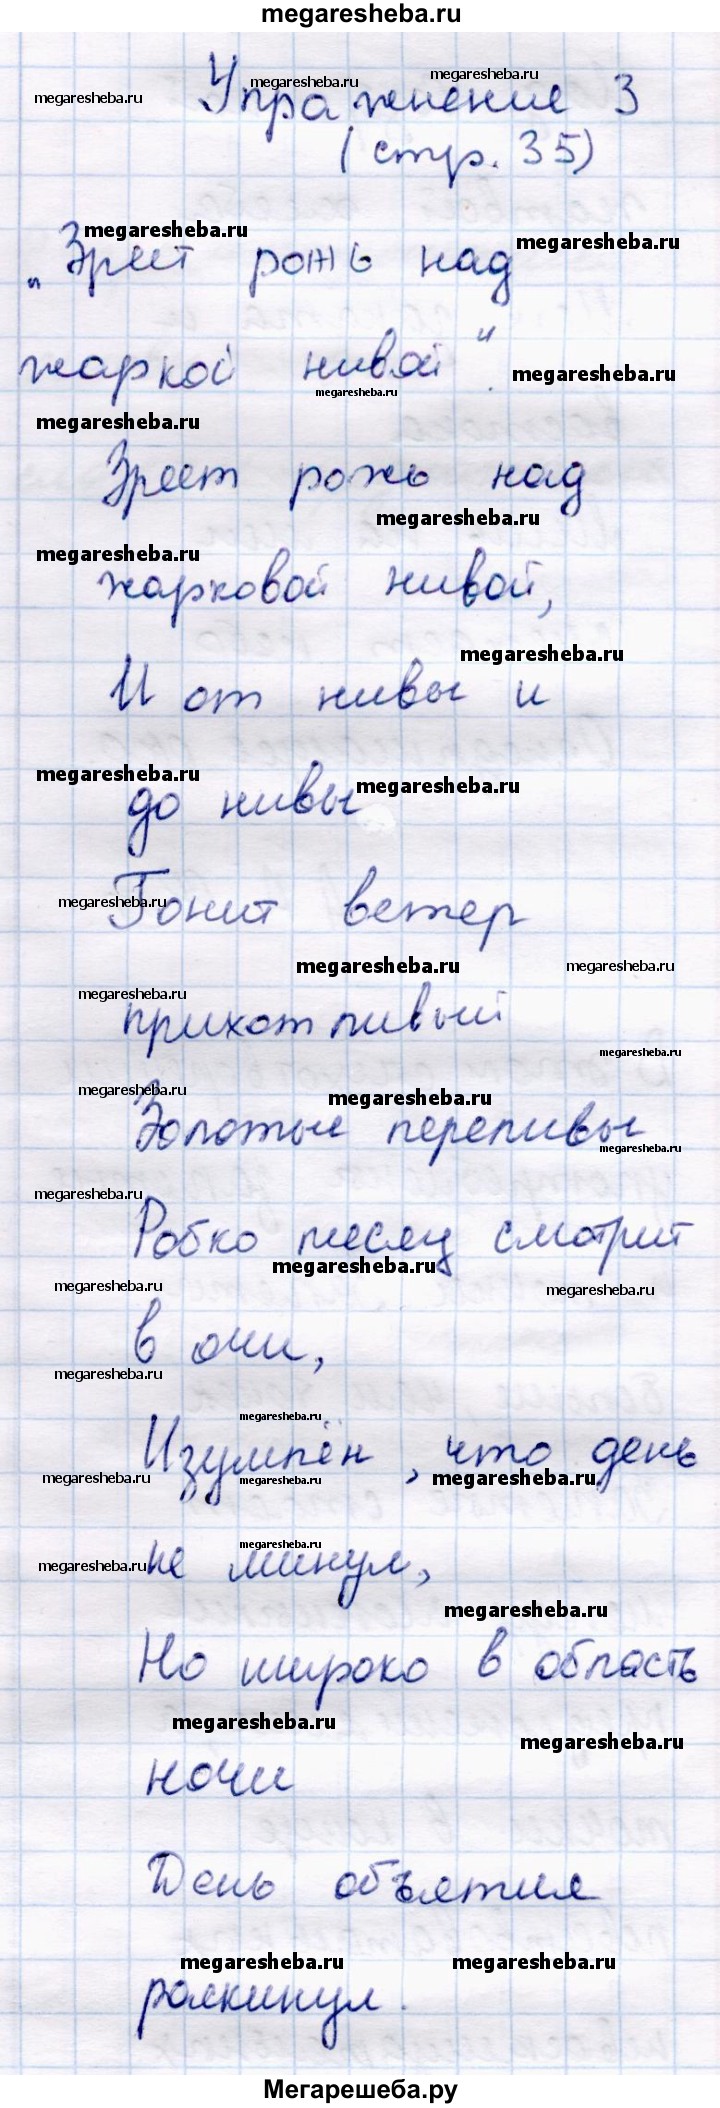 megaresheba.ru
Упражнение 3
(стр. 35)
„Зреет рожь над
жаркой нивой“.
Зреет рожь над
жарковой нивой,
И от нивы и
до нивы
Гонит ветер
прихотливый
Золотые переливы
Робко месяц смотрит
в очи,
Изумлён, что день
не минул,
Но широко в область
ночи
День объятия
раскинул.
Мегарешеба.ру